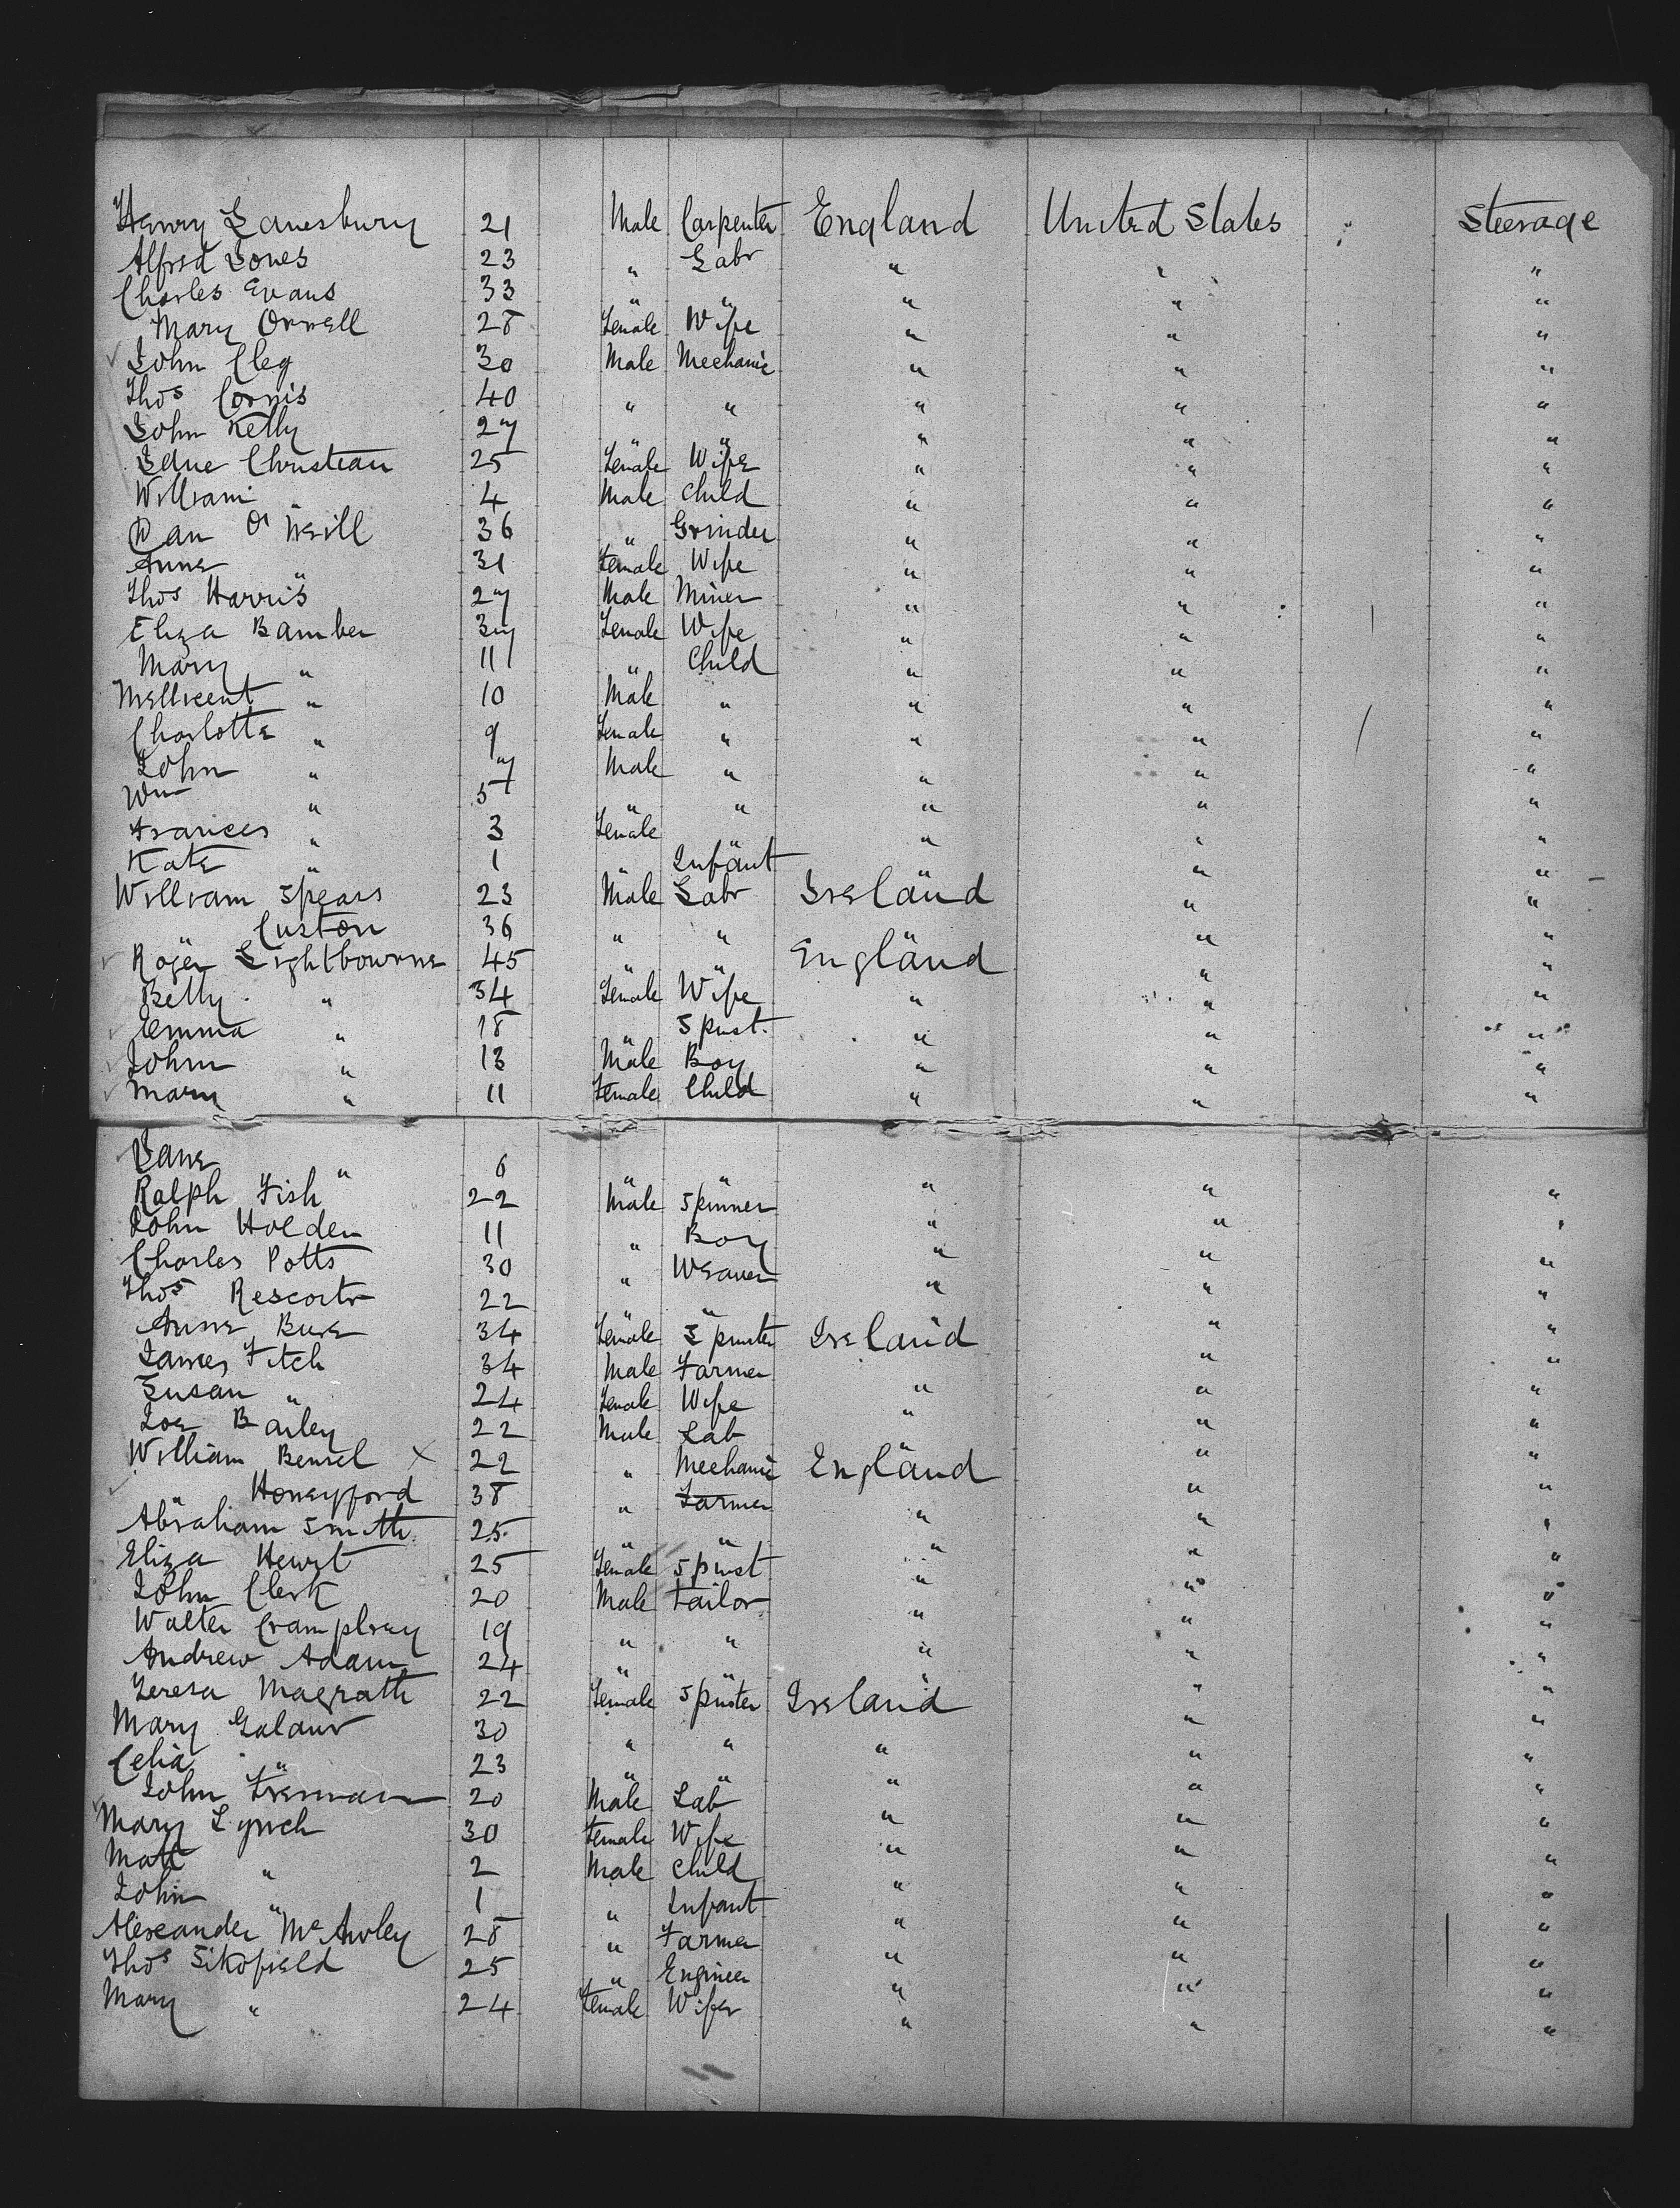 Henry Lanesbury 21 Male Carpenter England United States " Steerage
Alfred Jones 23 " Labr " " "
Charles Evans 33 " " " " "
Mary Orrell 28 Female Wife " " "
John Cleg 30 Male Mechanic " " "
Thos Cornis 40 " " " " "
John Kelly 27 " " " " "
Jane Christian 25 Female Wife " " "
William " 4 Male Child " " "
Dan O'Neill 36 " Grinder " " "
Anne " 31 Female Wife " " "
Thos Harris 27 Male Miner " " "
Eliza Bamber 37 Female Wife " " "
Mary " 11 " Child " " "
Mellicent " 10 Male " " " "
Charlotte " 9 Female " " " "
John " 7 Male " " " "
Wm " 5 " " " " "
Frances " 3 Female " " "
Kate " 1 " Infant " " "
William Spears 23 Male Labr Ireland " "
" Custon 36 " " " " "
Roger Lightbourne 45 " " England " "
Betty " 34 Female Wife " " "
Emma " 18 " Spust. " " "
John " 13 Male Boy " " "
Mary " 11 Female Child " " "
Jane " 6 " " " " "
Ralph Fish 22 Male Spinner " " "
John Holden 11 " Boy " " "
Charles Potts 30 " Weaver " " "
Thos 22 " " " " "
Anne 34 Female Spinster Ireland " "
James Fitch 34 Male Farmer " " "
Susan " 24 Female Wife " " "
Joe Bailey 22 Male Lab " " "
William X 22 " Mechanic England " "
" Honeyford 38 " Farmer " " "
Abraham Smith 25 " " " " "
Eliza Hewit 25 Female Spinst " " "
John Clerk 20 Male Tailor " " "
Walter 19 " " " " "
Andrew Adam 24 " " " " "
Teresa Magrath 22 Female Spinster Ireland " "
Mary 30 " " " " "
Celia " 23 " " " " "
John 20 Male Lab " " "
Mary Lynch 30 Female Wife " " "
Matt " 2 Male Child " " "
John " 1 " Infant " " "
Alexander McAuley 28 " Farmer " " "
Thos Sikofield 25 " Engineer " " "
Mary " 24 Female Wife " " "